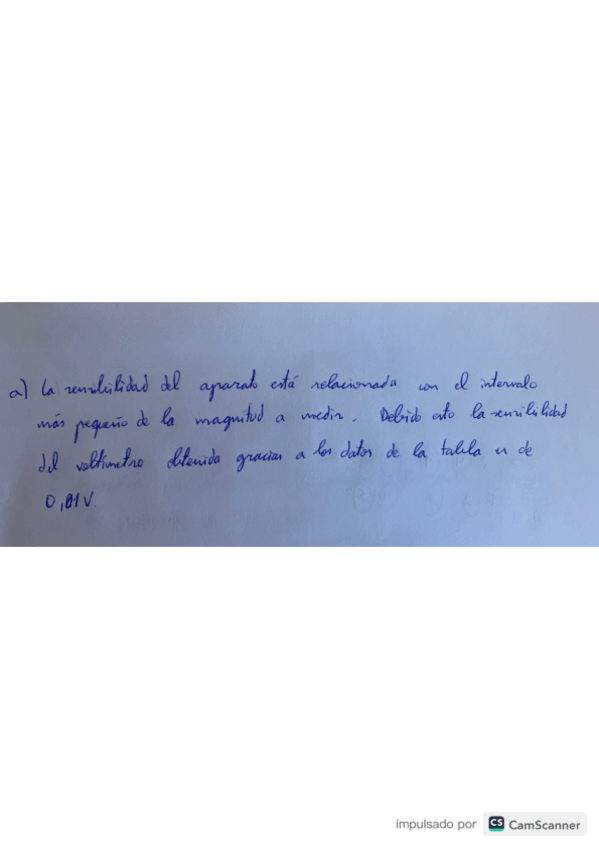 a) La sensibilidad del aparato está relacionada con el intervalo
más pequeño de la magnitud a medir. Debido esto la sensibilidad
del voltímetro obtenida gracias a los datos de la tabla es de
0,01V.
impulsado por CS CamScanner